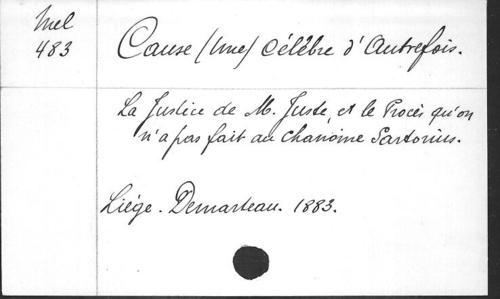 Mel
483
Cause (Une) Célèbre d'Autrefois.
La Justice de M. Juste, et le Procès qu'on
n'a pas fait au Chanoine Sartorius.
Liége. Demarteau. 1883.